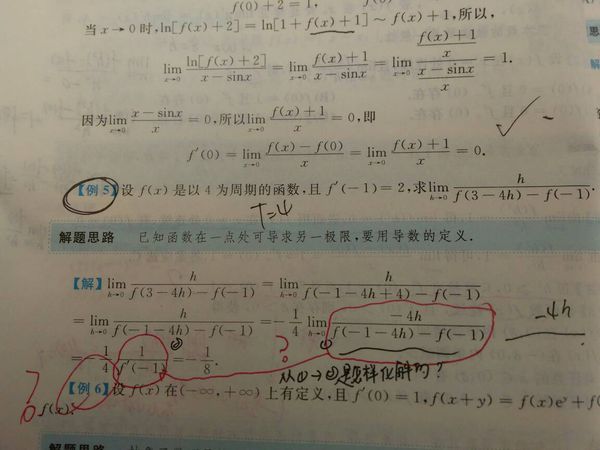 f(0)+2=1,
当 x→0 时,ln[f(x)+2]=ln[1+f(x)+1]~f(x)+1,所以,
lim x→0 ln[f(x)+2]/(x-sinx) = lim x→0 (f(x)+1)/(x-sinx) = lim x→0 ((f(x)+1)/x)/((x-sinx)/x) = 1.
因为lim x→0 (x-sinx)/x = 0,所以lim x→0 (f(x)+1)/x = 0,即
f'(0) = lim x→0 (f(x)-f(0))/x = lim x→0 (f(x)+1)/x = 0.
【例 5】设 f(x)是以 4 为周期的函数,且 f'(-1)=2,求lim h→0 h/(f(3-4h)-f(-1)).
T=4
解题思路 已知函数在一点处可导求另一极限,要用导数的定义.
【解】lim h→0 h/(f(3-4h)-f(-1)) = lim h→0 h/(f(-1-4h+4)-f(-1))
= lim h→0 h/(f(-1-4h)-f(-1)) = -1/4 lim h→0 -4h/(f(-1-4h)-f(-1))
-4h
② ? ①
= -1/4 1/f'(-1) = -1/8.
从①→②是怎样化解的?
【例 6】设 f(x)在(-∞,+∞)上有定义,且 f'(0)=1,f(x+y)=f(x)e^y+f(
? f(x).
解题思路